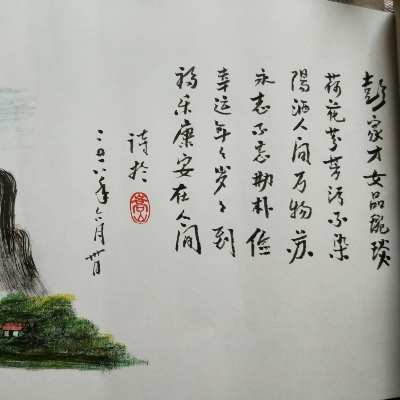 彭家才女品貌琰
荷花芬芳污不染
陽洒人间万物苏
永志不忘勤朴俭
幸运年々岁々到
福乐康安在人间
诗於
嵩山
二〇一八年六月